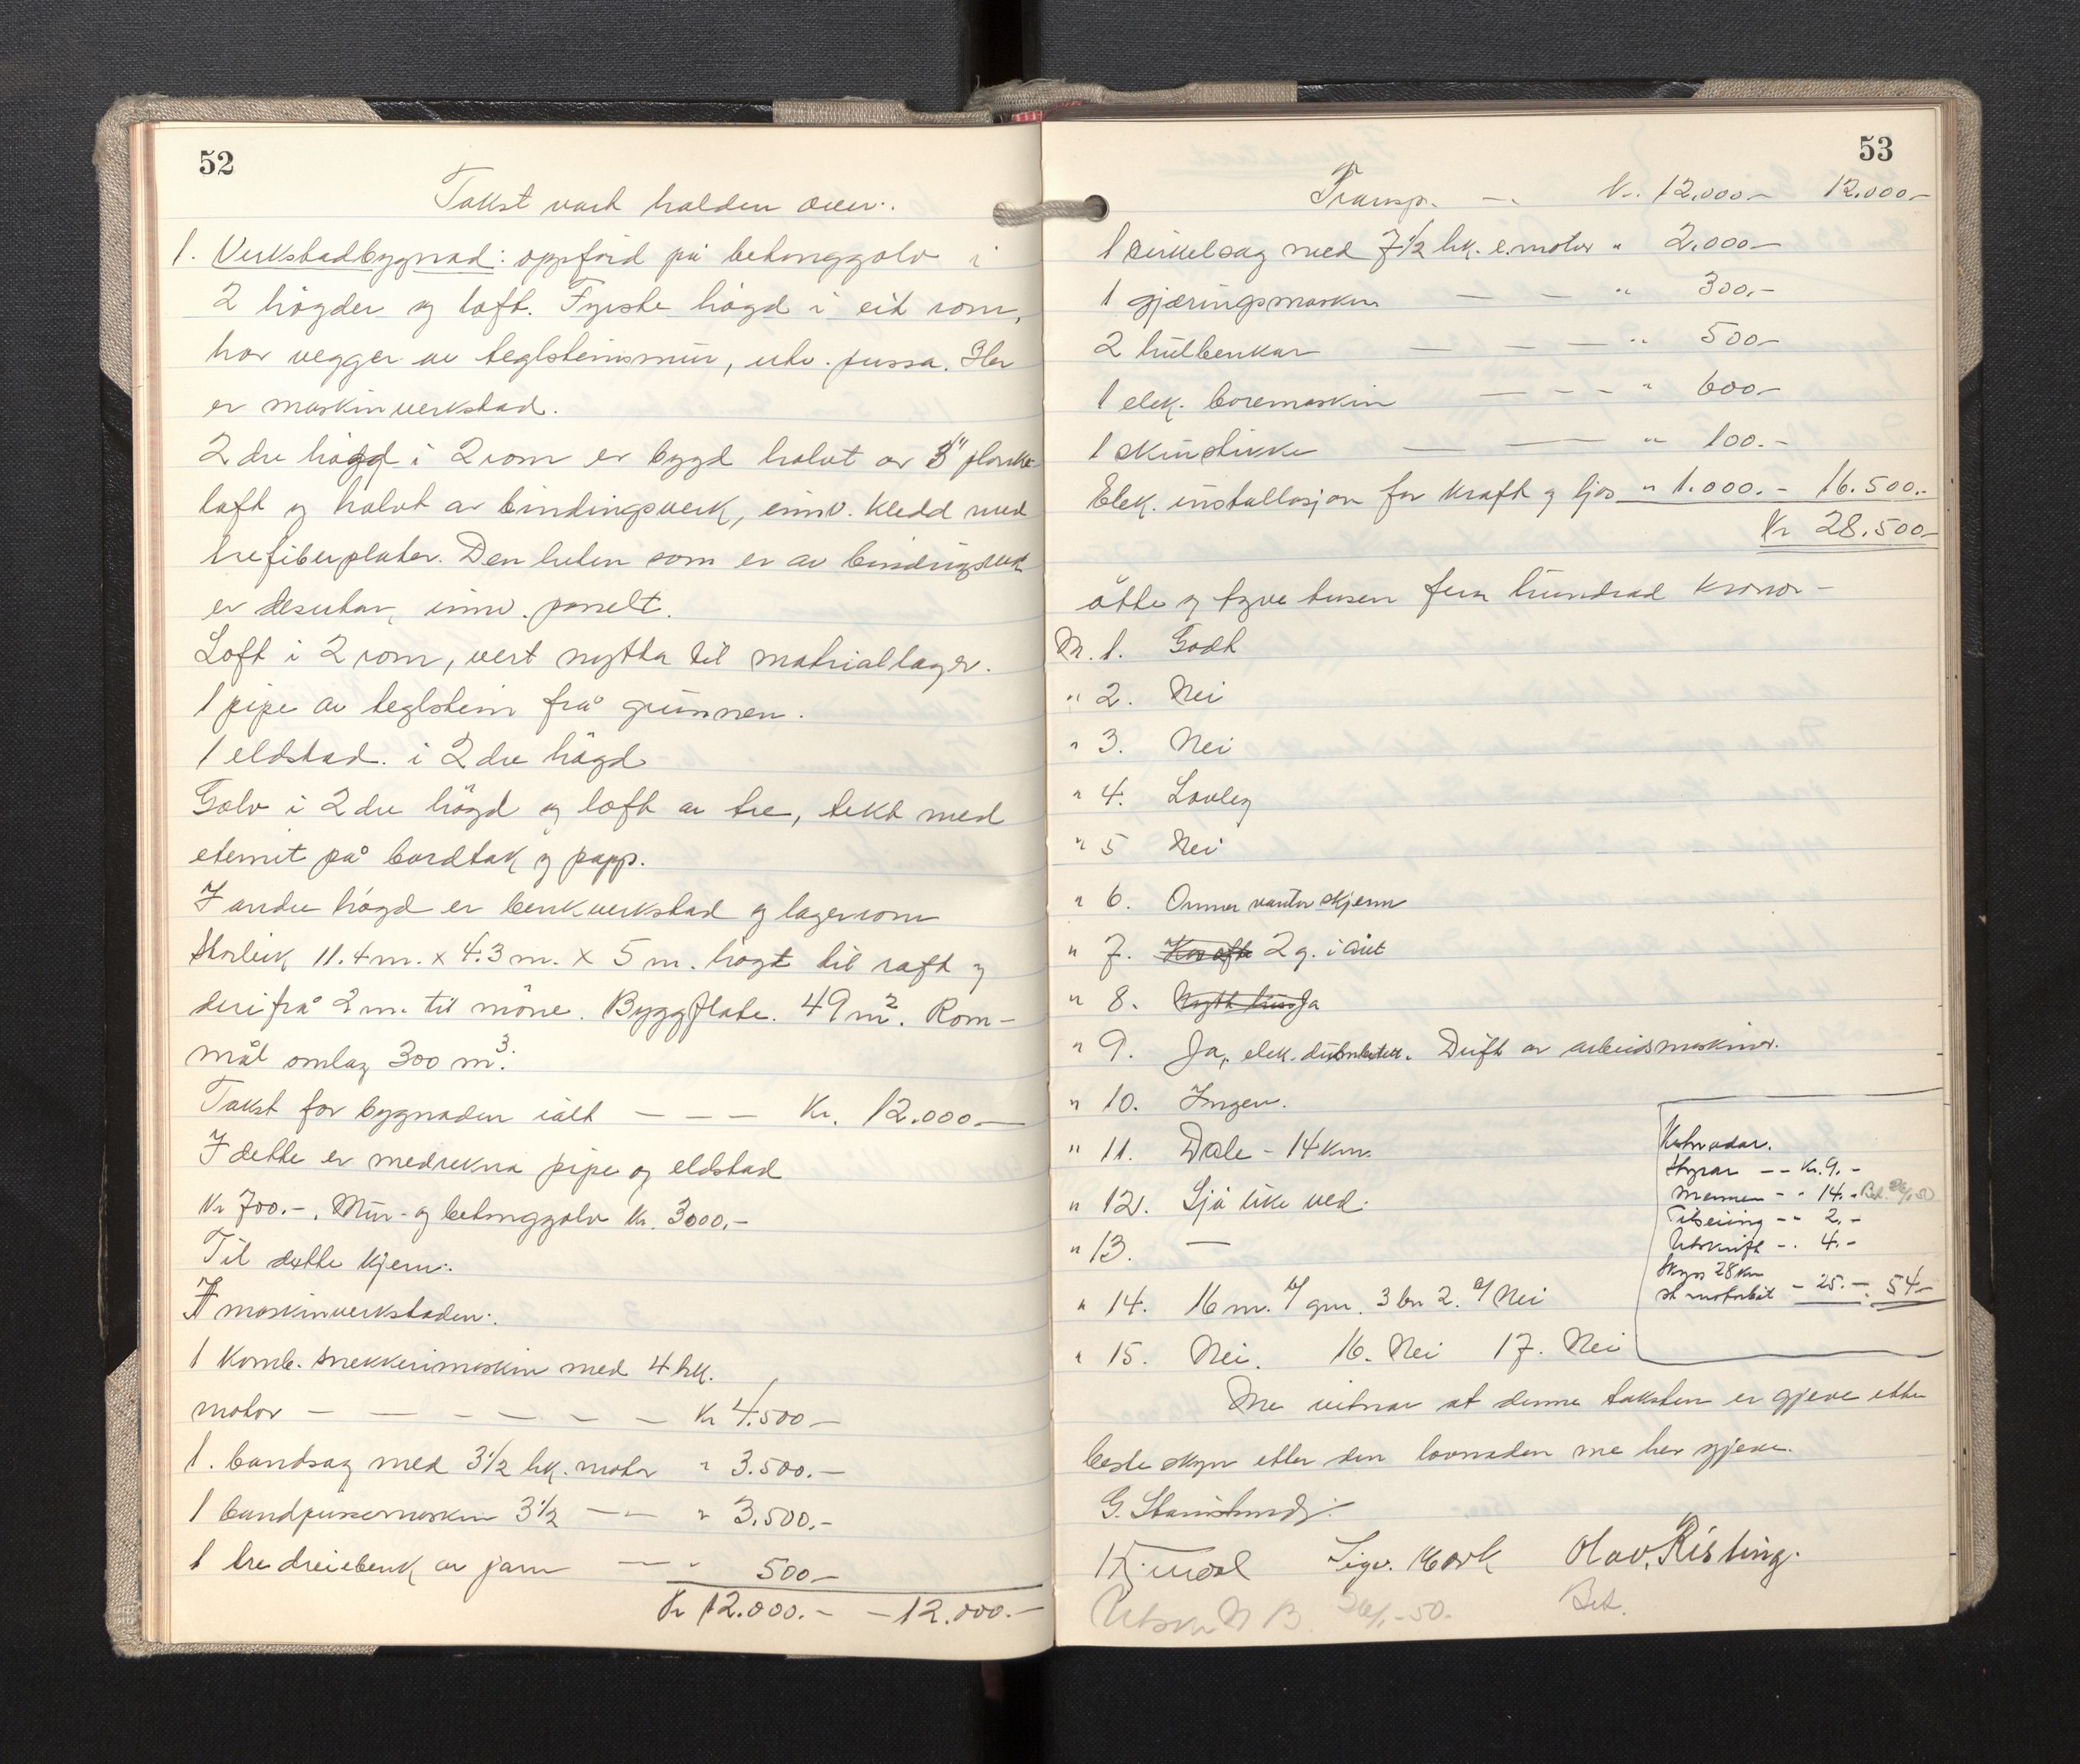 52
Takst vart halden over:
1. Verkstadbygnad: oppförd på betonggolv i
2 högder og loft. Fyrste högd i eit rom,
har vegger av teglsteinsmur, utv. pussa. Her
er maskinverkstad.
2 dre högd i 2 rom er bygd halvt av 3" planke-
laft og halvt av bindingsverk, innv. kledd med
trefiberplater. Den luten som er av bindingsverk
er desutan, innv. panelt.
Loft i 2 rom, vert nytta til matriallager.
1 pipe av teglstein frå grunnen.
1 eldstad. i 2 dre högd
Golv i 2 dre högd og loft av tre, tekt med
eternit på bordtak og papp.
I andre högd er benkverkstad og lagerrom
Storleik 11.4 m. x 4.3 m. x 5 m. högt til raft og
derifrå 2 m. til möne. Byggflate. 49 m2. Rom-
mål omlag 300 m3.
Takst for bygnaden ialt — — — Kr. 12.000.—
I dette er medrekna pipe og eldstad
Kr 700.-. Mur- og betonggolv Kr. 3000,-
Til dette kjem:
I maskinverkstaden:
1 Komb. snekkerimaskin med 4 hk.
motor — — — — — — — Kr 4.500—
1. bandsag med 3 1/2 hk. motor " 3.500.—
1 bandpussemaskin 3 1/2 — — " 3.500.-
1 tre dreiebenk av jarn — " 500—
Kr 12.000.- - 12.000.—
53
Transp. —. Kr. 12.000— 12.000—
1 sirkelsag med 7 1/2 hk. e.motor " 2.000—
1 gjæringsmaskin — — " 300.-
2 hulbenkar — — — " 500-
1 elek. boremaskin — — — " 600-
1 skinstikke — — " 100.-
Elek. installasjon for kraft og ljos " 1.000.- 16.500.-
Kr 28.500-
åtte og tyve tusen fem hundrad kronor —
Nr. 1. Godt
" 2. Nei
" 3. Nei
" 4. Lovleg
" 5 Nei
" 6. Onnor vanter skjem
" 7. 2 g. i året
" 8. Ja
" 9. Ja, elek. Drift av arbeidsmaskiner.
" 10. Ingen.
" 11. Dale - 14 km.
" 12. Sjå like ved.
" 13. —
" 14. 16 m. b/ grn. 3 br 2. c/ Nei
" 15. Nei. 16. Nei 17. Nei
Kostnadar.
Styrar -- Kr. 9.-
Mennen - " 14.-
Tilseiing -- 2.-
Utskrift -. 4.-
Skyss 28 km
m motorbåt - 25.- 54-
Me vitnar at denne taksten er gjeve etter
beste skyn etter den lovnaden me her gjeve.
Sigv. Mork Olav. Risting.
Utskr. N B. 26/1-50. Bet.